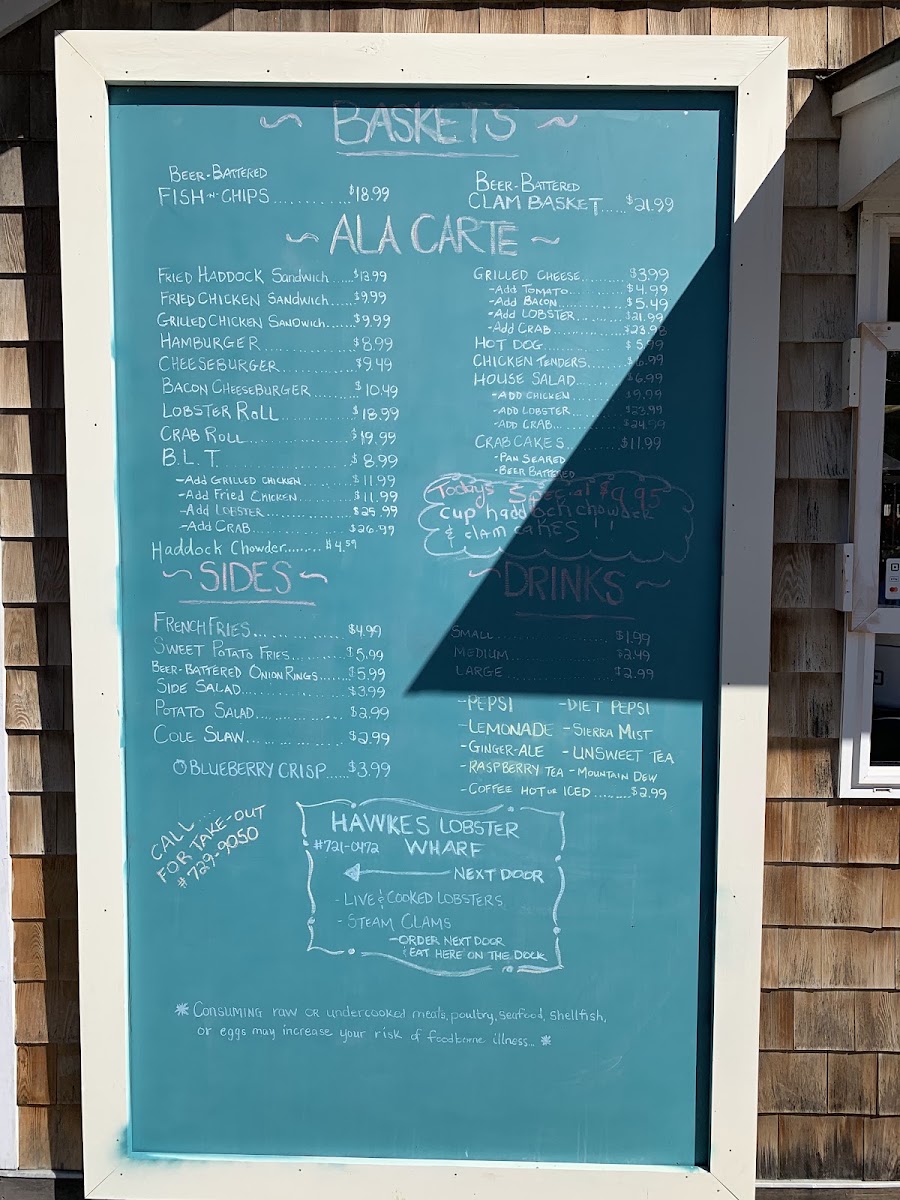 ~ BASKETS ~
BEER-BATTERED
FISH-N-CHIPS.............$18.99
BEER-BATTERED
CLAM BASKET......$21.99
~ ALA CARTE ~
FRIED HADDOCK Sandwich....$13.99
FRIED CHICKEN SANDWICH.....$9.99
GRILLED CHICKEN SANDWICH......$9.99
HAMBURGER..................$8.99
CHEESEBURGER...............$9.49
BACON CHEESEBURGER.........$10.49
LOBSTER ROLL...............$18.99
CRAB ROLL..................$19.99
B.L.T......................$8.99
-ADD GRILLED CHICKEN.......$11.99
-Add Fried CHICKEN.........$11.99
-Add LOBSTER...............$25.99
-Add CRAB..................$26.99
Haddock Chowder........$4.59
GRILLED CHEESE.........$3.99
-Add TOMATO............$4.99
-Add BACON.............$5.49
-Add LOBSTER...........$21.99
-Add CRAB..............$23.98
HOT DOG................$5.99
CHICKEN TENDERS........$6.99
HOUSE SALAD............$6.99
-ADD CHICKEN...........$9.99
-ADD LOBSTER...........$23.99
-ADD CRAB..............$24.99
CRAB CAKES.............$11.99
-PAN SEARED
-BEER BATTERED
Todays Special $9.95
Cup haddock chowder
& clam cakes !!
~ SIDES ~
FRENCH FRIES...............$4.99
SWEET POTATO FRIES.........$5.99
BEER-BATTERED ONION RINGS.......$5.99
SIDE SALAD.................$3.99
POTATO SALAD...............$2.99
COLE SLAW..................$2.99
BLUEBERRY CRISP......$3.99
~ DRINKS ~
SMALL..................$1.99
MEDIUM.................$2.49
LARGE..................$2.99
-PEPSI -DIET PEPSI
-LEMONADE -SIERRA MIST
-GINGER-ALE -UNSWEET TEA
-RASPBERRY TEA -MOUNTAIN DEW
-COFFEE HOT OR ICED.........$2.99
CALL...
FOR TAKE-OUT
#729-9050
HAWKES LOBSTER
#721-0472 WHARF
← NEXT DOOR
-LIVE & COOKED LOBSTERS
-STEAM CLAMS
-ORDER NEXT DOOR
& EAT HERE ON THE DOCK
* CONSUMING raw OR undercooked meats, poultry, seafood, shellfish,
or eggs may increase your risk of foodborne illness... *